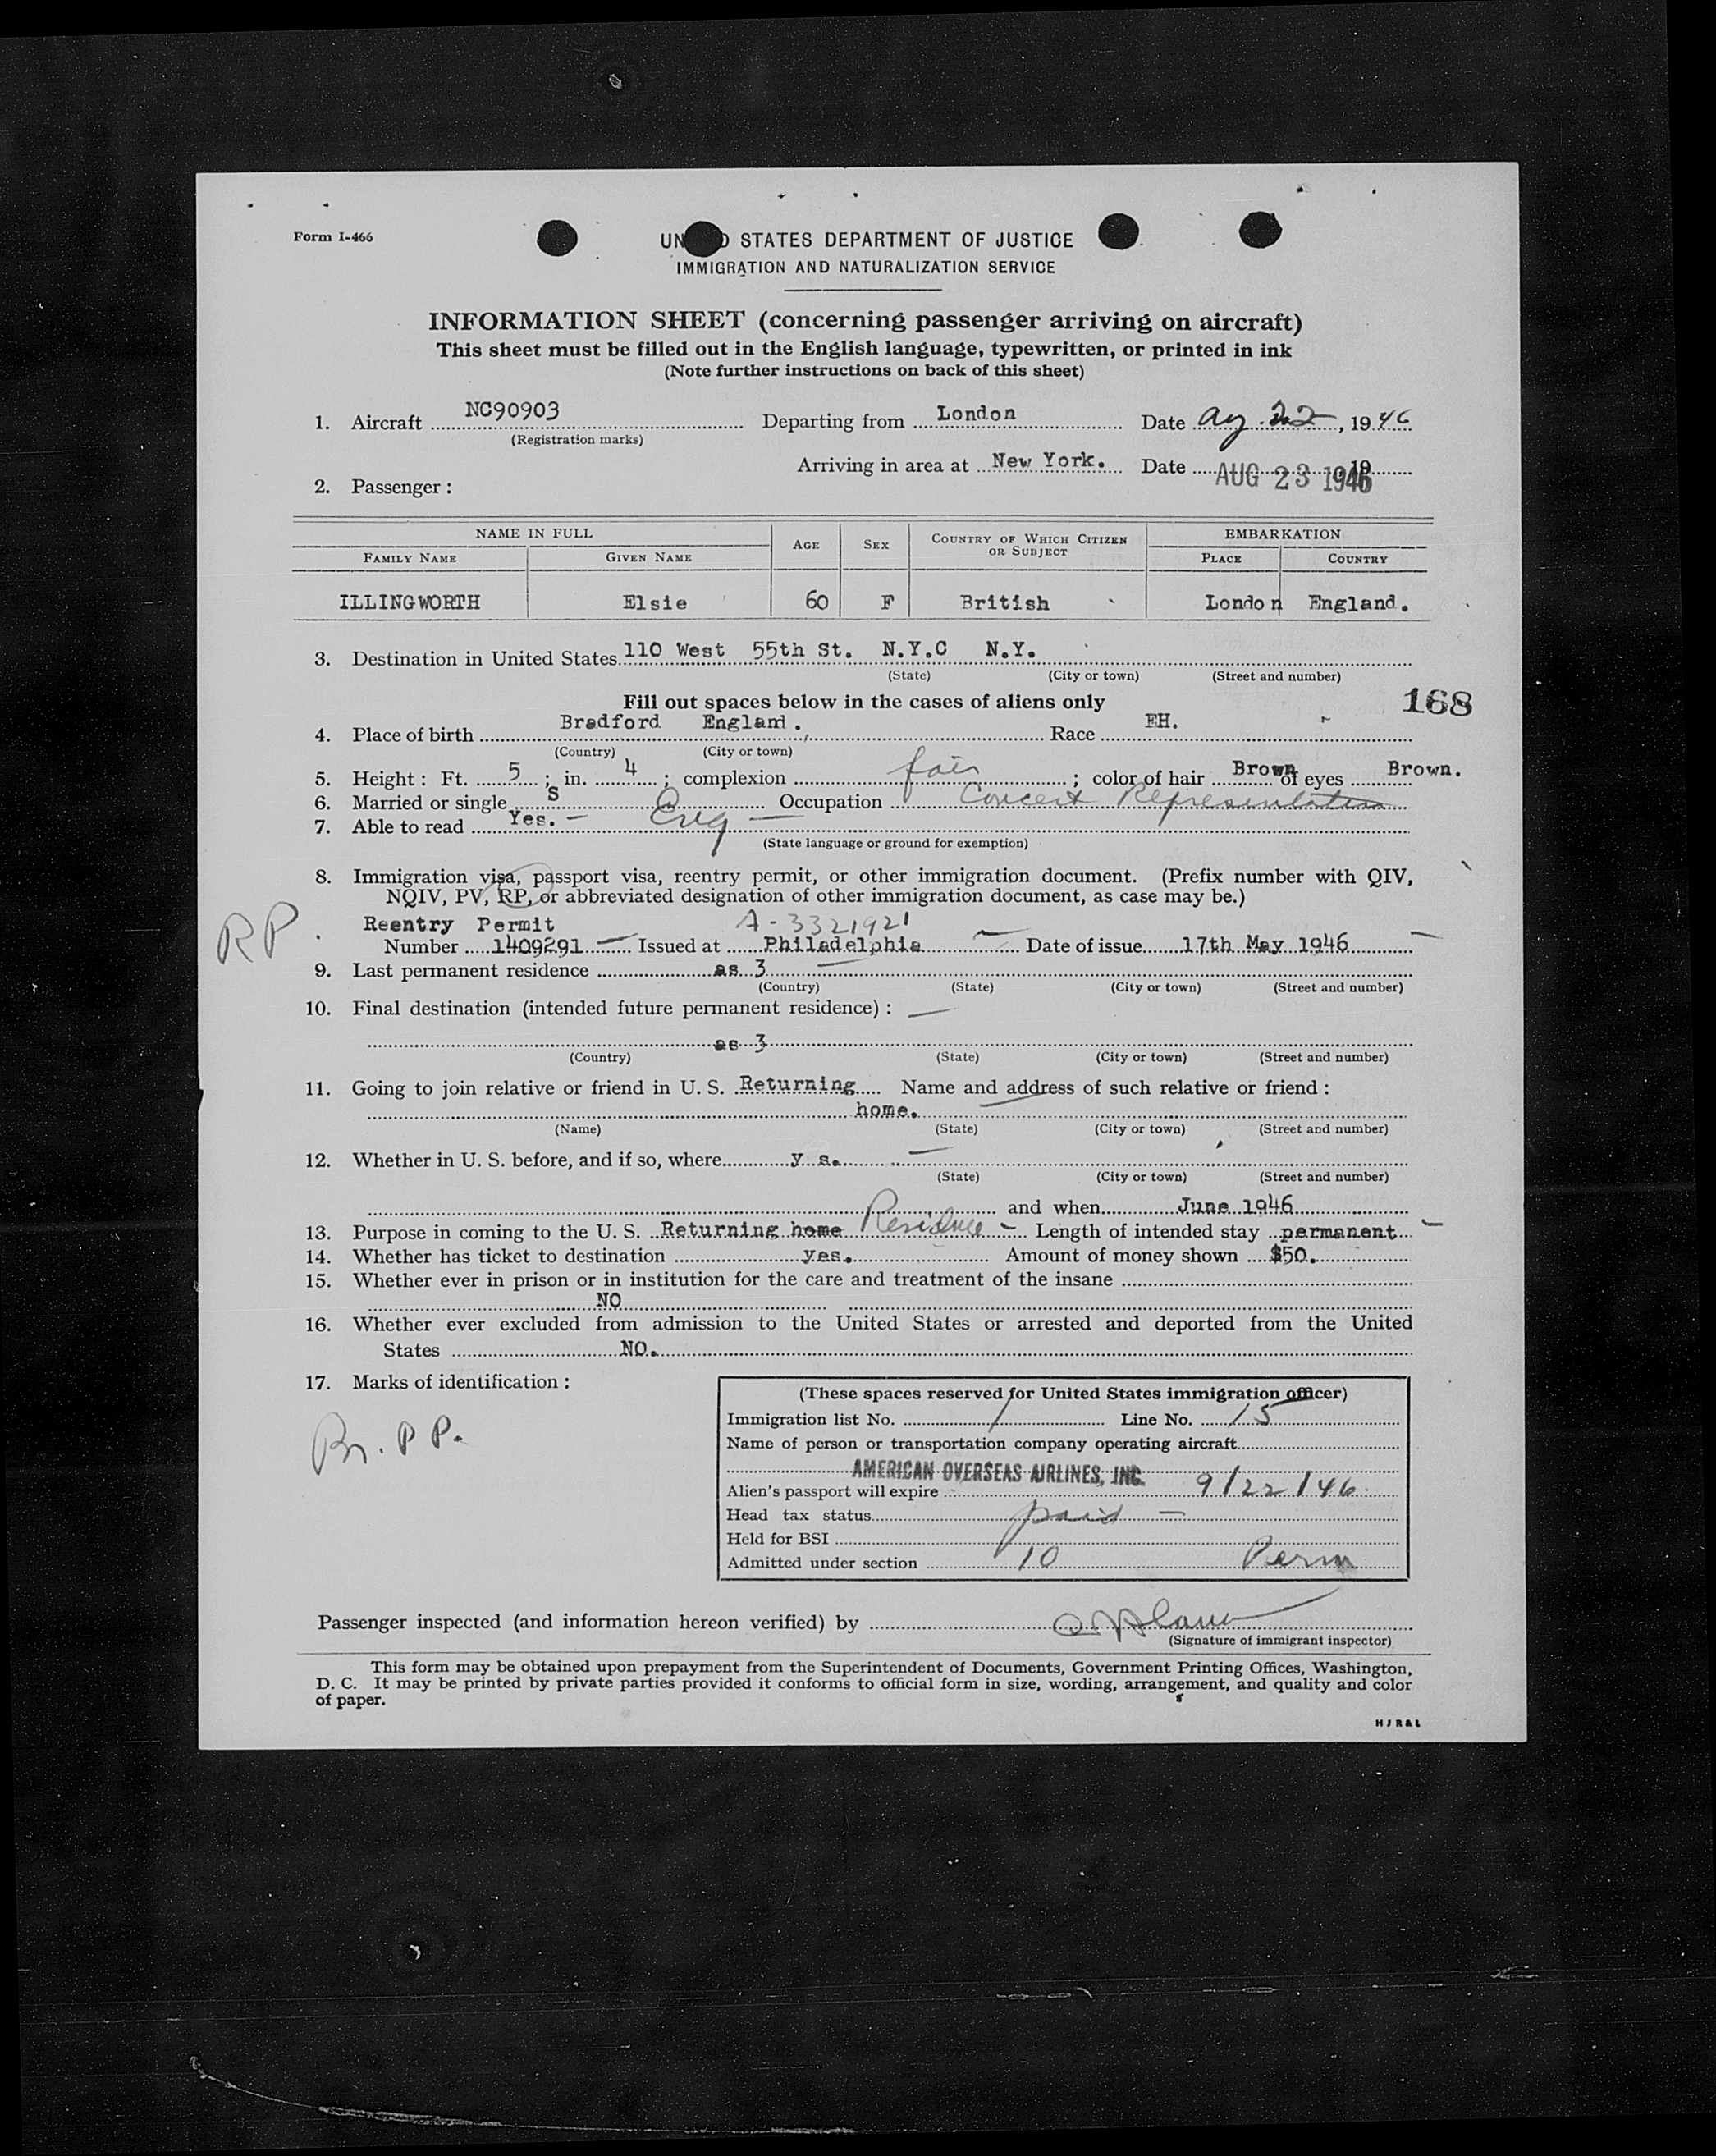 Form I-466
UN D STATES DEPARTMENT OF JUSTICE
IMMIGRATION AND NATURALIZATION SERVICE
INFORMATION SHEET (concerning passenger arriving on aircraft)
This sheet must be filled out in the English language, typewritten, or printed in ink
(Note further instructions on back of this sheet)
1. Aircraft NC90903 Departing from London Date Aug. 22, 1946
(Registration marks)
Arriving in area at New York. Date AUG 23 1946 19
2. Passenger:
NAME IN FULL AGE SEX COUNTRY OF WHICH CITIZEN OR SUBJECT EMBARKATION
FAMILY NAME GIVEN NAME PLACE COUNTRY
ILLINGWORTH Elsie 60 F British London England.
3. Destination in United States 110 West 55th St. N.Y.C N.Y.
(State) (City or town) (Street and number)
Fill out spaces below in the cases of aliens only 168
4. Place of birth Bradford England. Race EH.
(Country) (City or town)
5. Height: Ft. 5; in. 4; complexion fair; color of hair Brown of eyes Brown.
6. Married or single S Occupation Concert Representative
7. Able to read Yes. - Eng -
(State language or ground for exemption)
8. Immigration visa, passport visa, reentry permit, or other immigration document. (Prefix number with QIV,
NQIV, PV, RP, or abbreviated designation of other immigration document, as case may be.)
RP Reentry Permit A-3321921
Number 1409291 Issued at Philadelphia Date of issue 17th May 1946
9. Last permanent residence as 3
(Country) (State) (City or town) (Street and number)
10. Final destination (intended future permanent residence):
as 3
(Country) (State) (City or town) (Street and number)
11. Going to join relative or friend in U. S. Returning Name and address of such relative or friend:
home.
(Name) (State) (City or town) (Street and number)
12. Whether in U. S. before, and if so, where y s.
(State) (City or town) (Street and number)
and when June 1946
13. Purpose in coming to the U. S. Returning home Residence - Length of intended stay permanent
14. Whether has ticket to destination yes. Amount of money shown $50.
15. Whether ever in prison or in institution for the care and treatment of the insane
NO
16. Whether ever excluded from admission to the United States or arrested and deported from the United
States NO.
17. Marks of identification:
Br. P P.
(These spaces reserved for United States immigration officer)
Immigration list No. 1 Line No. 15
Name of person or transportation company operating aircraft
AMERICAN OVERSEAS AIRLINES, INC.
Alien's passport will expire 9/22/46
Head tax status paid -
Held for BSI
Admitted under section 10 Perm
Passenger inspected (and information hereon verified) by
(Signature of immigrant inspector)
This form may be obtained upon prepayment from the Superintendent of Documents, Government Printing Offices, Washington,
D. C. It may be printed by private parties provided it conforms to official form in size, wording, arrangement, and quality and color
of paper.
HJR&L